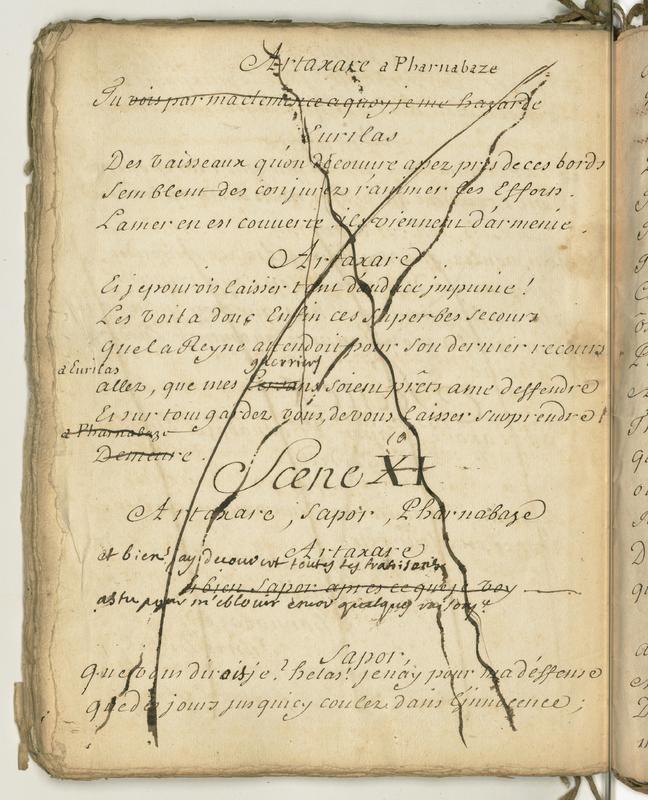 Artaxare a Pharnabaze
Tu vois par ma clemence a quoy je me hazarde
Eurilas
Des vaisseaux qu'on découvre assez prés de ces bords
Semblent des conjurez r'animer les Efforts.
La mer en est couverte ils viennent d'armenie
Artaxare
Et je pourois laisser tant d'audace impunie !
Les Voila donc Enfin ces superbes secours
que la Reyne attendoit pour son dernier recours
guerriers
a Eurilas
allez, que mes Persans soient prêts a me deffendre
Et sur tout gardez vous, de vous laisser surprendre !
a Pharnabaze
Demeure.
10
Scene XI
Artaxare, Sapor, Pharnabaze
Artaxare
et bien! j'ay decouvert toutes tes trahisons
Et bien Sapor apres ce que je voy
as tu pour m'eblouir encor quelques raisons?
Sapor
Que vous dirois je? helas! je n'ay pour ma déffense
que des jours jusqu'icy coulez dans l'innocence ;